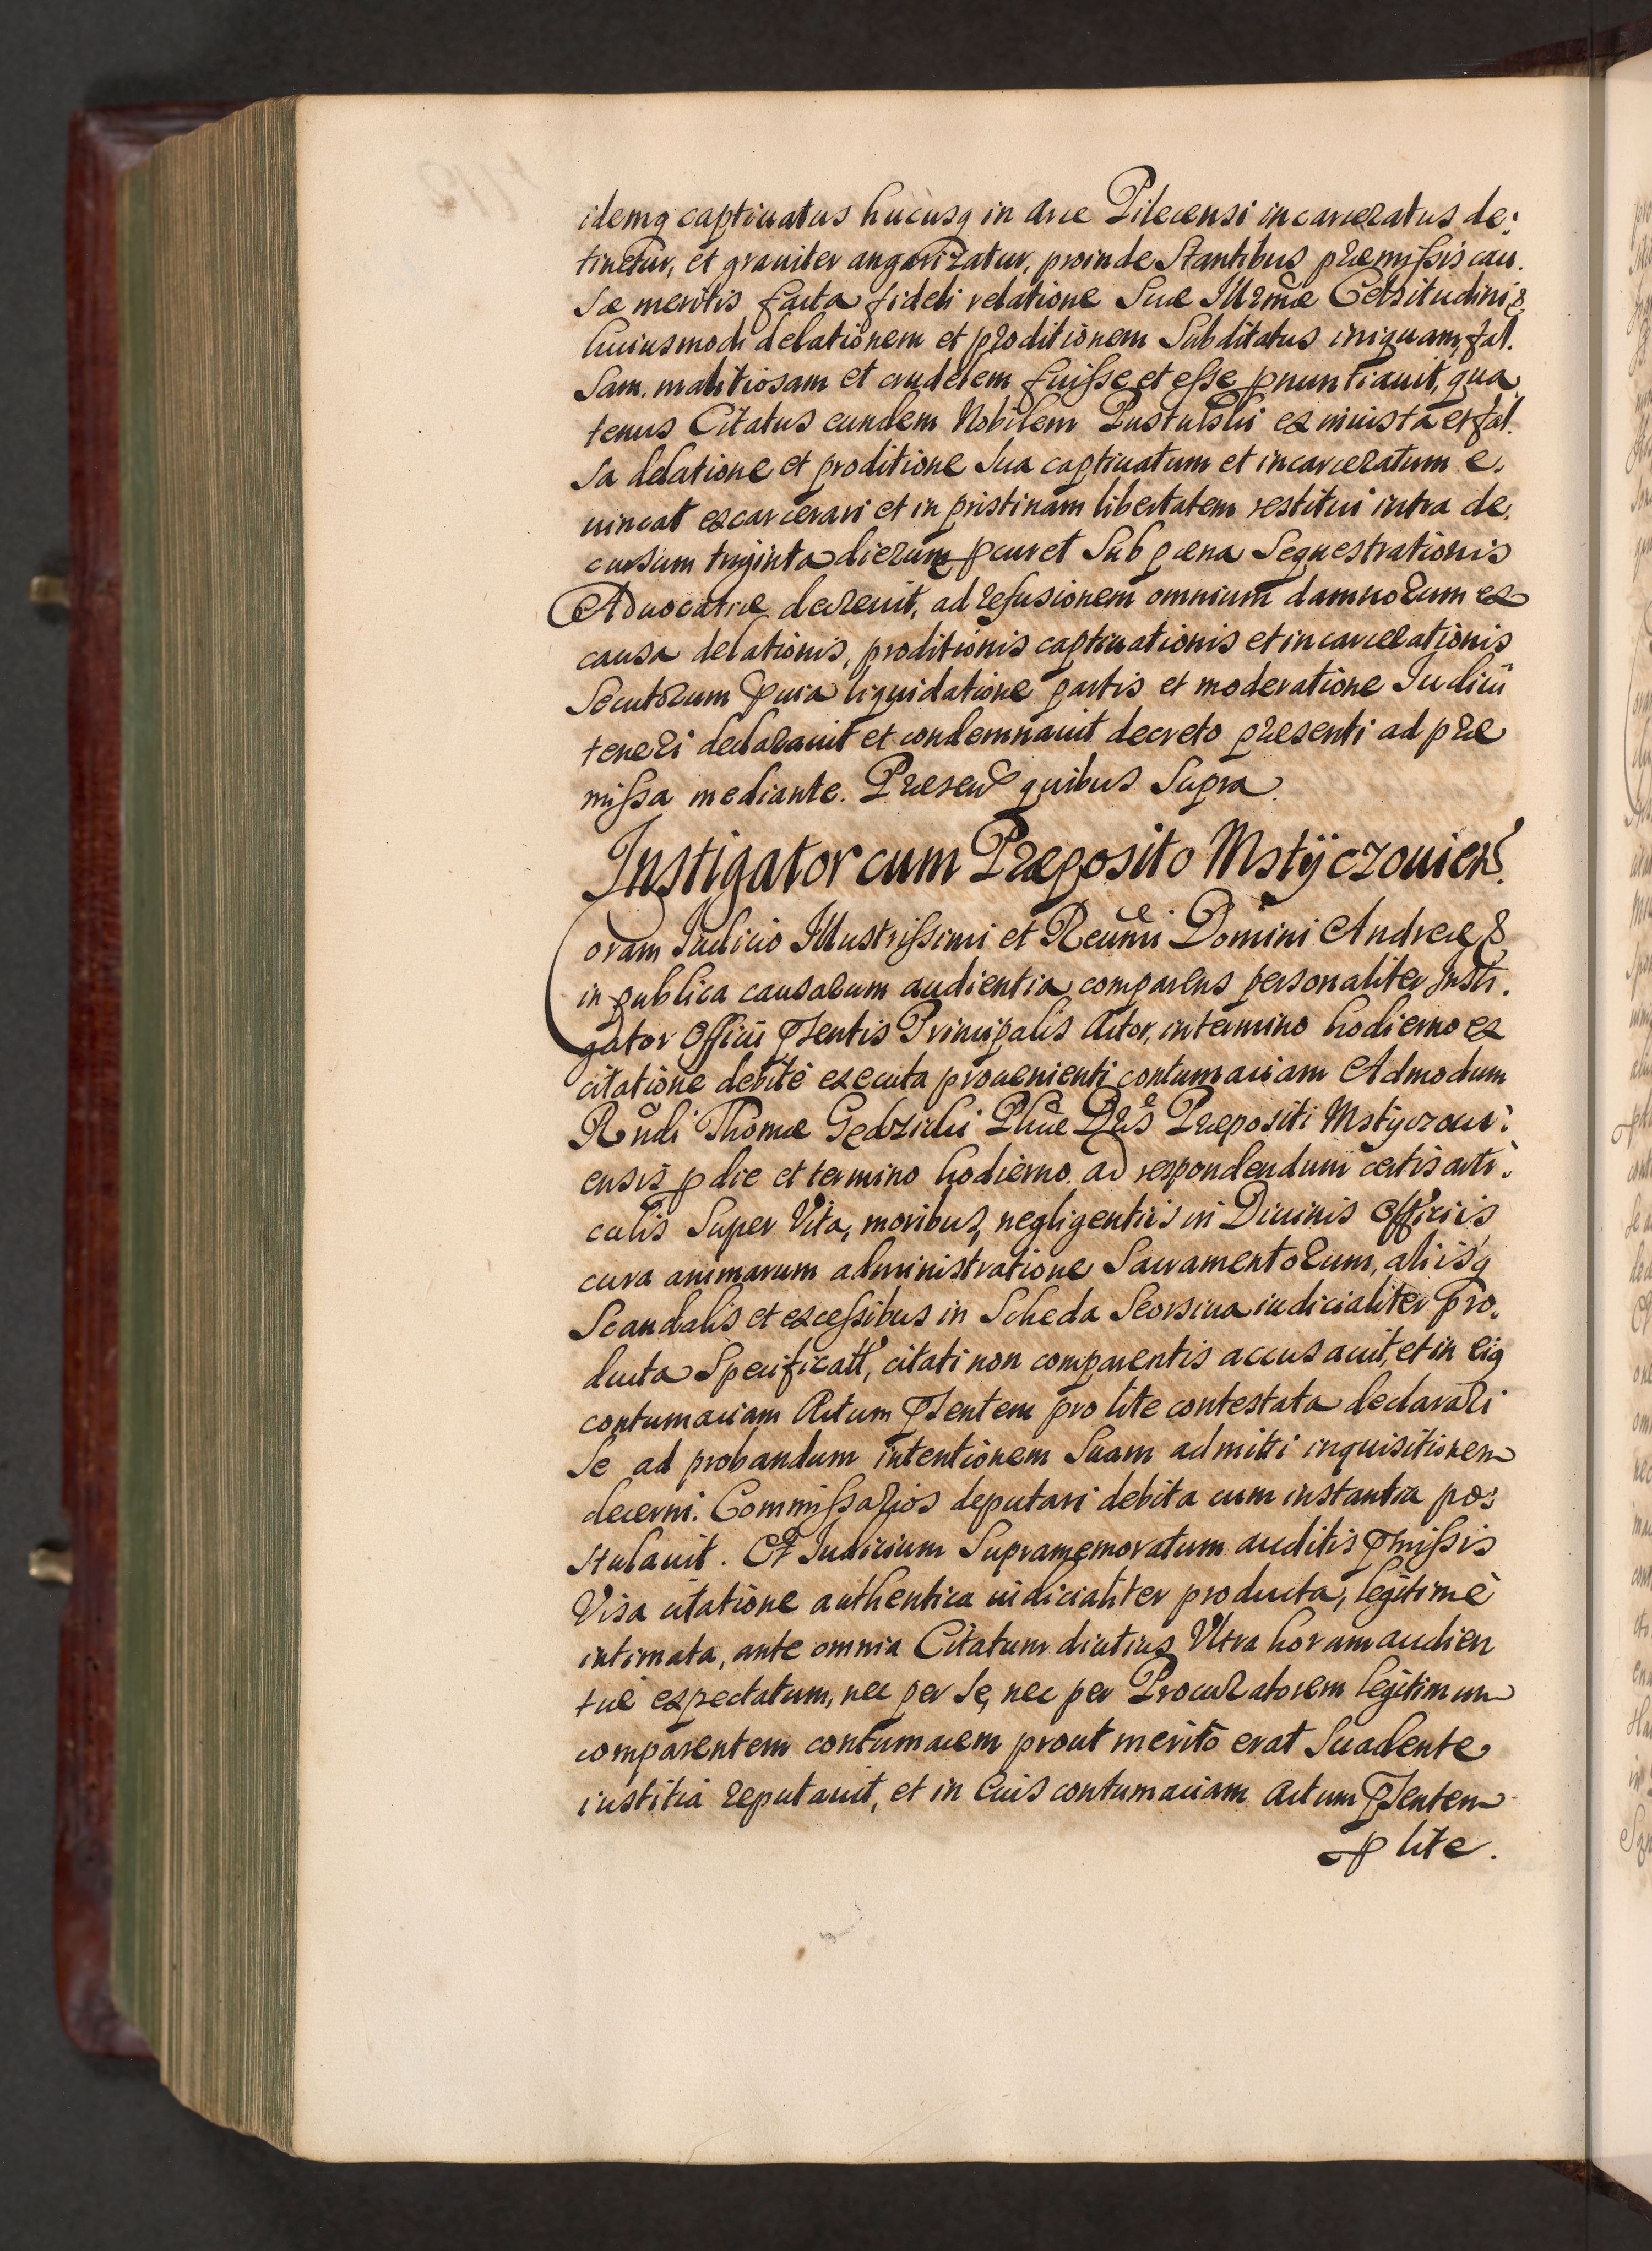 idemq captiuatus hucusq in Arce Pilecensi incarceratus de:
tinetur, et grauiter angarizatur, proinde Stantibus præmissis cau.
Sæ meritis facta fideli relatione Suæ Illrmæ Celsitudini &
huiusmodi delationem et proditionem Subditatus iniquam, fal.
Sam, malitiosam et crudelem fuisse et esse pnuntiauit, qua
tenus Citatus eundem Nobilem Pustulski ex iniusta et fal.
Sa delatione et proditione Sua captiuatum et incarceratum e.
uincat excarcerari et in pristinam libertatem restitui intra de.
cursum triginta dierum pcuret Sub pæna Sequestrationis
Aduocatiæ decreuit, ad refusionem omnium damnorum ex
causa delationis, proditionis captiuationis et incarcerationis
Secutorum puia liquidatione partis et moderatione Iudicii
teneri declarauit et condemnauit decreto præsenti ad præ
missa mediante. Præsen quibus Supra.
Instigator cum Præposito Mstÿczouien.
Coram Iudicio Illustrissimi et Reumi Domini Andreæ &
in publica causarum audientia comparens personaliter Insti.
gator Officii Psentis Principalis Actor, in termino hodierno ex
citatione debitè executa prouenienti contumaciam Admodum
Rndi Thomæ Gedzicki Phiæ Dris Præpositi Mstyczoui:
ensis p die et termino hodierno ad respondendum certis arti:
culis Super Vita, moribus, negligentiis in Diuinis Officiis
cura animarum administratione Sacramentorum, aliisq
Scandalis et excessibus in Scheda Seorsiua iudicialiter pro.
ducta Specificatt, citati non comparentis accusauit, et in eiq
contumaciam Actum Psentem pro lite contestata declarari
Se ad probandum intentionem Suam admitti inquisitionem
decerni. Commissarios deputari debita cum instantia pos
stulauit. Et Iudicium Supramemoratum auditis pmissis
Visa citatione authentica iudicialiter producta, legitimè
intimata, ante omnia Citatum diutius Vltra horam audien
tiæ expectatum, nec per Se, nec per Procuratorem legitimum
comparentem contumacem prout meritò erat Suadente
iustitia reputauit, et in Eius contumaciam Actum Psentem
p lite.